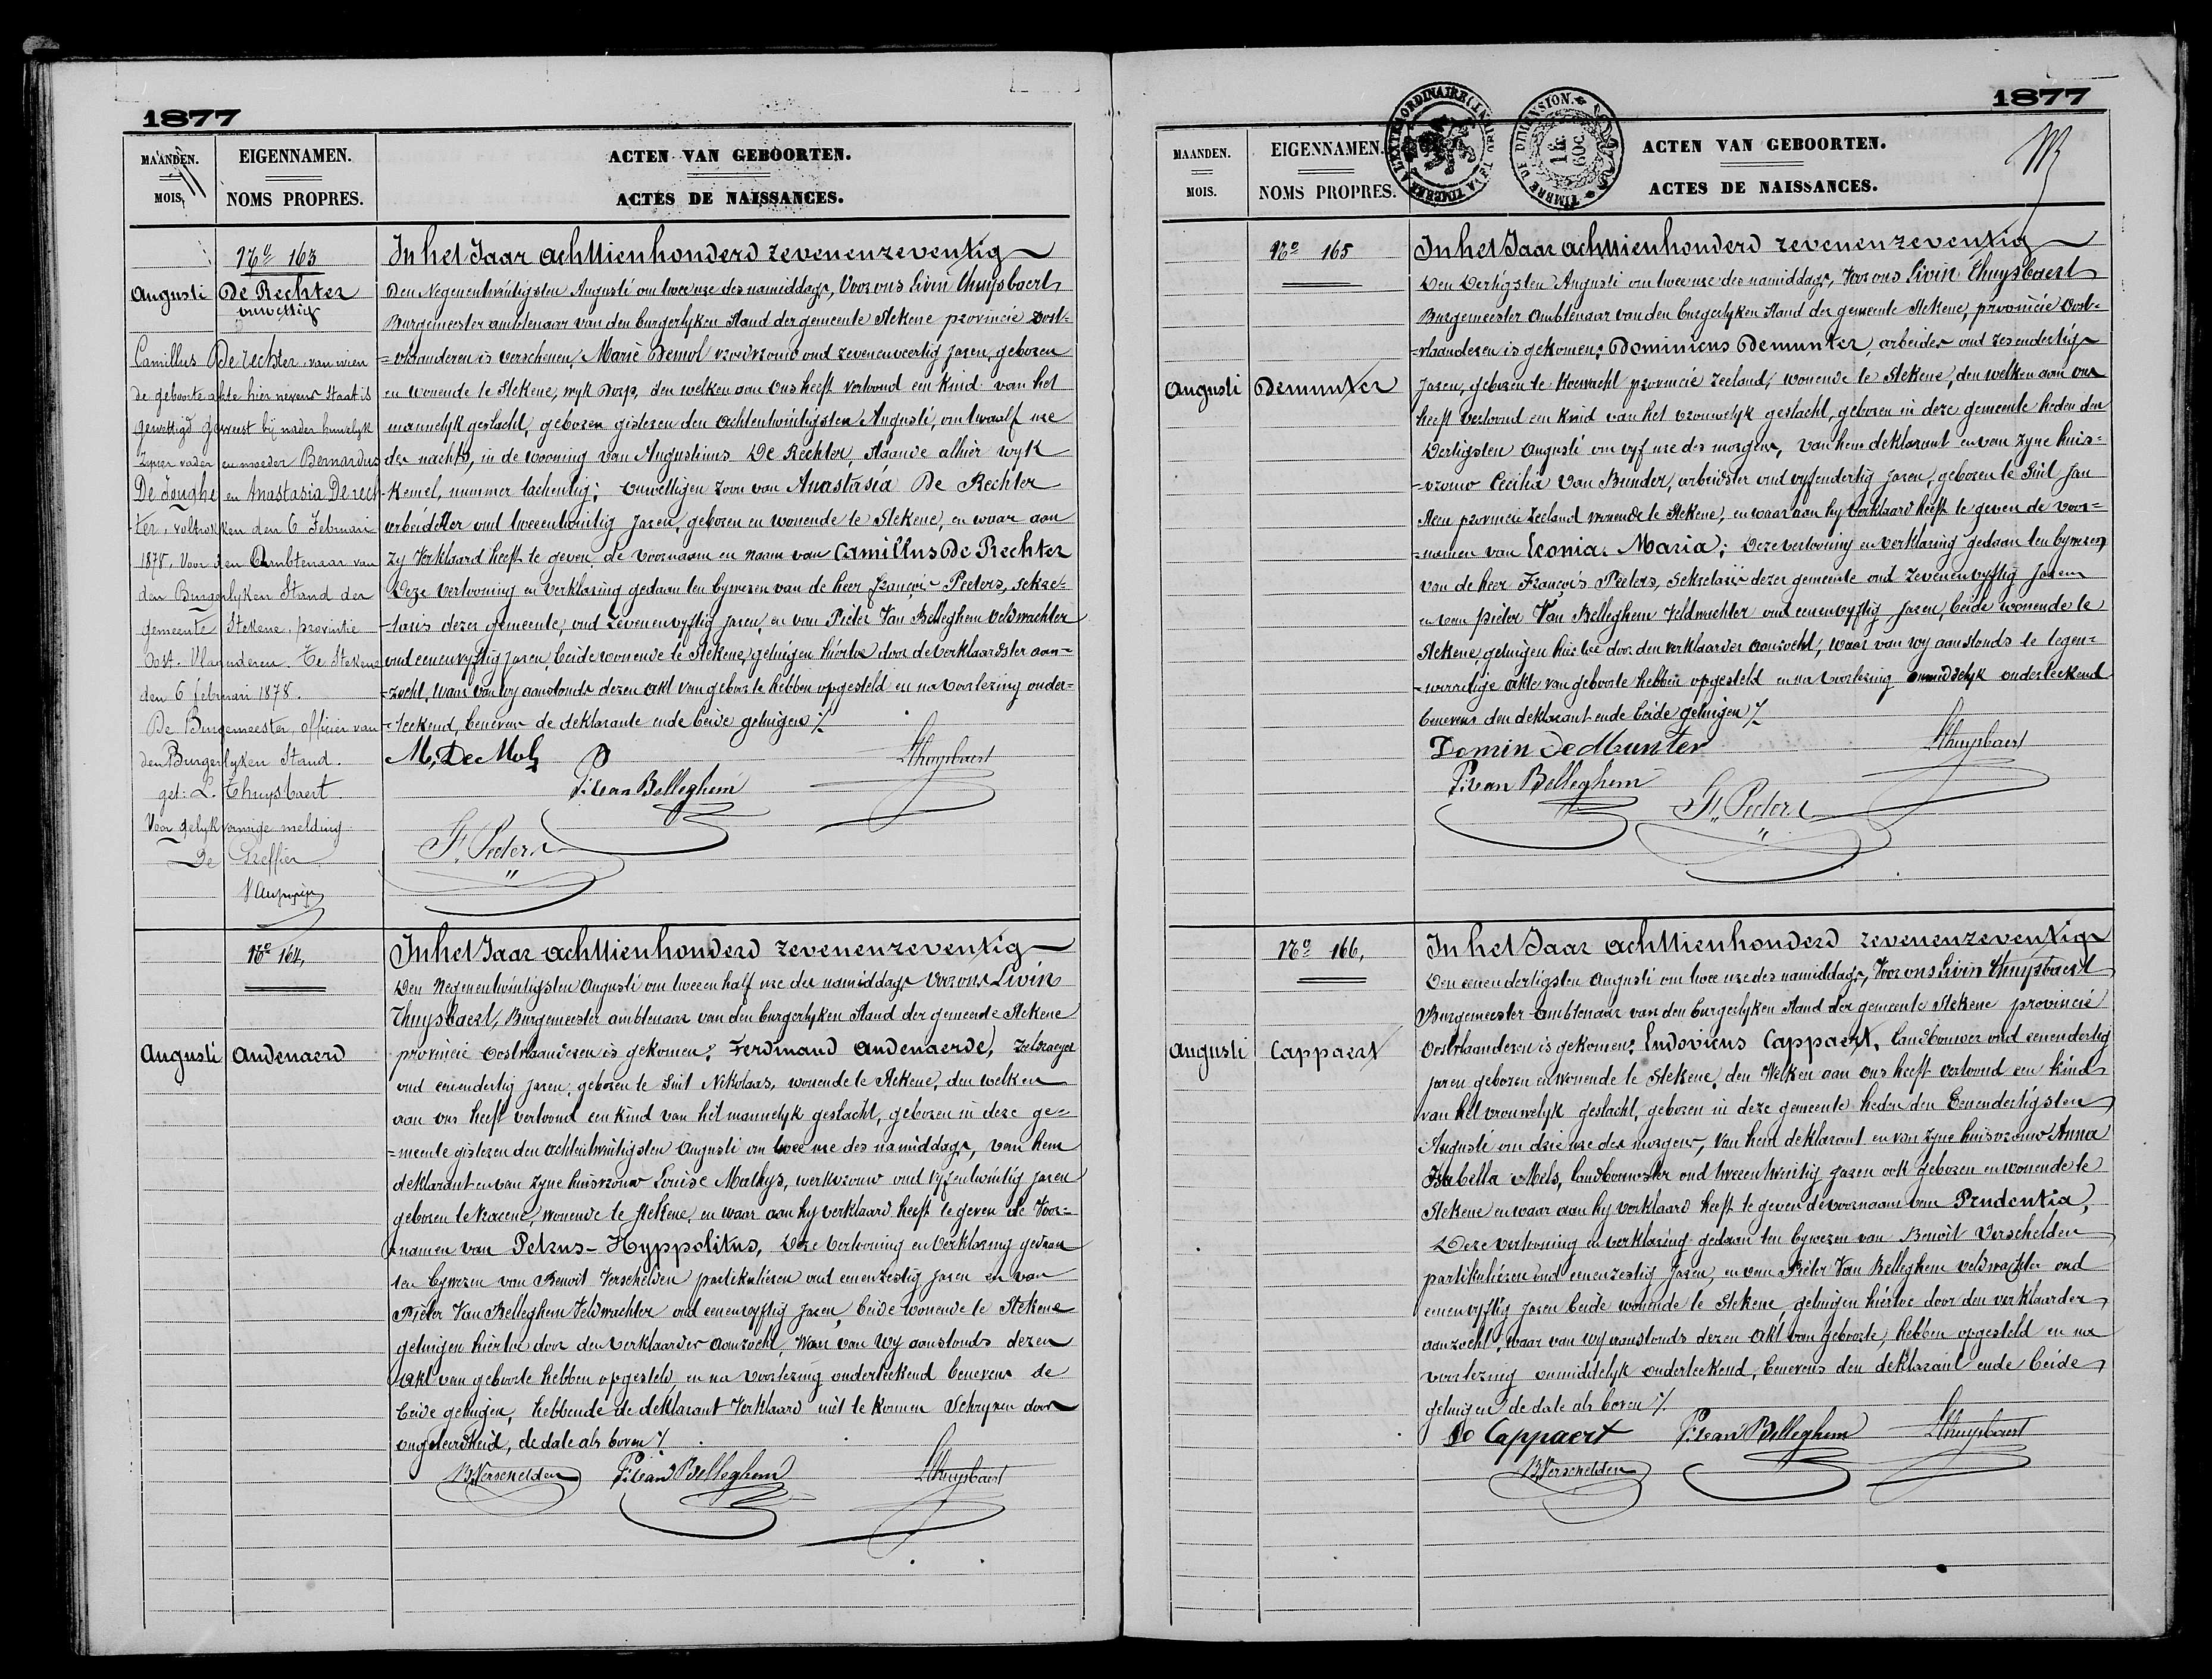 1877
MAANDEN.
MOIS.
EIGENNAMEN.
NOMS PROPRES.
ACTEN VAN GEBOORTEN.
ACTES DE NAISSANCES.
No 163
Augusti
De Rechter
onwettig
Camillus De rechter, van wien
de geboorte akte hier nevens staat is
gewettigd geweest bij nader huwelyk
zyner vader en moeder Bernardus
De Jonghe en Anastasia De rech-
ter, voltrokken den 6 Februari
1878, voor den Ambtenaar van
den Burgerlyken Stand der
gemeente Stekene, provintie
Oost-Vlaanderen. Te Stekene
den 6 februari 1878.
De Burgemeester, officier van
den Burgerlyken Stand.
get: L. Thuysbaert
Voor gelykvormige melding
De Greffier
In het Jaar achttienhonderd zevenenzeventig
Den Negenentwintigsten Augusti om twee ure des namiddags, Voor ons Livin Thuysbaert
Burgemeester ambtenaar van den burgerlyken Stand der gemeente Stekene provincie Oost-
=vlaanderen is verschenen, Marie Demol vroedvrouw oud zevenenveertig jaren, geboren
en wonende te Stekene, wyk Dorp, den welken aan Ons heeft vertoond een kind van het
mannelyk geslacht, geboren gisteren den achtentwintigsten Augusti, om twaalf ure
des nachts, in de wooning van Augustinus De Rechter, staande alhier wyk
Kemel, nummer tachentig; onwettigen zoon van Anastasia De Rechter
arbeidster oud tweeentwintig jaren, geboren en wonende te Stekene, en waar aan
zy Verklaard heeft te geven de voornaam en naam van Camillus De Rechter
Deze vertooning en verklaring gedaan ten bywezen van de heer François Peeters, sekre-
-taris dezer gemeente, oud zevenenvyftig jaren, en van Pieter Van Belleghem veldwachter
oud eenenvyftig jaren, beide wonende te Stekene, getuigen hiertoe door de verklaardster aan-
=zocht, waar van wy aanstonds dezen akt van geboorte hebben opgesteld en na voorlezing onder-
=teekend, benevens de deklarante ende beide getuigen ./.
M: De Mol
P: van Belleghem
L Thuysbaert
Fs Peeters
No 164,
Augusti
Audenaerd
In het Jaar achttienhonderd zevenenzeventig
Den Negenentwintigsten Augusti om tweeen half ure des namiddags voor ons Livin
Thuysbaert, Burgemeester ambtenaar van den burgerlyken Stand der gemeente Stekene
provincie Oostvlaanderen is gekomen: Ferdinand Audenaerde,
oud eenendertig jaren, geboren te Sint Nikolaas, wonende te Stekene, den welken
aan ons heeft vertoond een kind van het mannelyk geslacht, geboren in deze ge-
=meente gisteren den achtentwintigsten Augusti om twee ure des namiddags, van hem
deklarant en van zyne huisvrouw Louise Mathys, werkvrouw oud vyfentwintig jaren
geboren te Vracene, wonende te Stekene, en waar aan hy verklaard heeft te geven de Voor-
=namen van Petrus-Hyppolitus, Deze vertooning en verklaring gedaan
ten bywezen van Benoit Verschelden partikulieren oud eenenzestig jaren en van
Pieter Van Belleghem Veldwachter oud eenenvyftig jaren, beide wonende te Stekene
getuigen hiertoe door den verklaarder aanzocht, Waar van wy aanstonds dezen
Akt van geboorte hebben opgesteld, en na voorlezing onderteekend benevens de
beide getuigen, hebbende de deklarant Verklaard niet te konnen Schryven door
ongeleerdheid, de date als boven ./.
B. Verschelden
P: van Belleghem
L Thuysbaert
1877
MAANDEN.
MOIS.
EIGENNAMEN.
NOMS PROPRES.
TIMBRE DE DIMENSION.
1 F.
60 C.
ACTEN VAN GEBOORTEN.
ACTES DE NAISSANCES.
No 165
Augusti
Demunter
In het Jaar achttienhonderd zevenenzeventig
Den Dertigsten Augusti om twee ure des namiddags, Voor ons Livin Thuysbaert
Burgemeester Ambtenaar van den burgerlyken Stand der gemeente Stekene, provincie Oost-
=vlaanderen is gekomen: Dominicus Demunter, arbeider oud zesendertig
jaren, geboren te Koewacht provincie Zeeland, wonende te Stekene, den welken aan ons
heeft vertoond een kind van het vrouwelyk geslacht, geboren in deze gemeente heden den
Dertigsten Augusti om vyf ure des morgens, van hem deklarant en van zyne huis-
-vrouw Cecilia Van Bunder, arbeidster oud vyfendertig jaren, geboren te Sint Jan
Steen provincie Zeeland wonende te Stekene, en waar aan hy verklaard heeft te geven de voor-
=namen van Leonia-Maria; Deze vertooning en verklaring gedaan ten bywezen
van de heer François Peeters, Sekretaris dezer gemeente oud zevenenvyftig jaren
en van pieter Van Belleghem Veldwachter oud eenenvyftig jaren, beide wonende te
Stekene, getuigen hiertoe door den verklaarder aanzocht, waar van wy aanstonds te tegen-
-woordige akte van geboorte hebben opgesteld en na voorlezing onmiddelyk onderteekend
benevens den deklarant ende beide getuigen ./.
Domin de Munter
L Thuysbaert
P: van Belleghem
Fs Peeters
No 166,
Augusti
Cappaert
In het Jaar achttienhonderd zevenenzeventig
Den eenendertigsten Augusti om twee ure des namiddags, Voor ons Livin Thuysbaert
Burgemeester Ambtenaar van den burgerlyken Stand der gemeente Stekene provincie
Oostvlaanderen is gekomen: Ludovicus Cappaert, Landbouwer oud eenendertig
jaren geboren en wonende te Stekene, den Welken aan ons heeft vertoond een kind
van het vrouwelyk geslacht, geboren in deze gemeente heden den Eenendertigsten
Augusti om drie ure des morgens, van hem deklarant en van zyne huisvrouw Anna
Isabella Mels, landbouwster oud tweeentwintig jaren ook geboren en wonende te
Stekene en waar aan hy verklaard heeft te geven de voornaam van Prudentia,
Deze vertooning en verklaring gedaan ten bywezen van Benoit Verschelden
partikulieren oud eenenzestig jaren, en van Pieter Van Belleghem veldwachter oud
eenenvyftig jaren beide wonende te Stekene, getuigen hiertoe door den verklaarder
aanzocht, waar van wy aanstonds dezen Akt van geboorte, hebben opgesteld en na
voorlezing onmiddelyk onderteekend, benevens den deklarant ende beide
getuigen de date als boven ./.
Do Cappaert
P: van Belleghem
L Thuysbaert
B. Verschelden